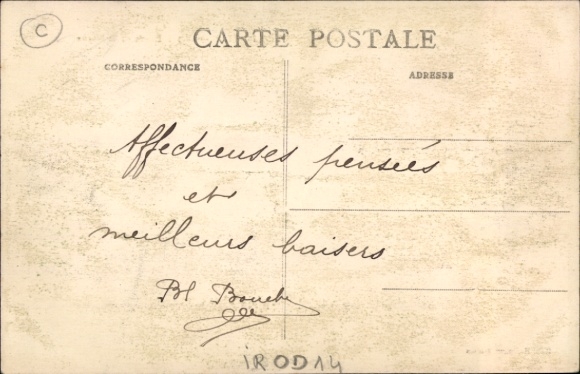 C
CARTE POSTALE
CORRESPONDANCE
ADRESSE
Affectueuses pensées
et
meilleurs baisers
Bl
IROD14